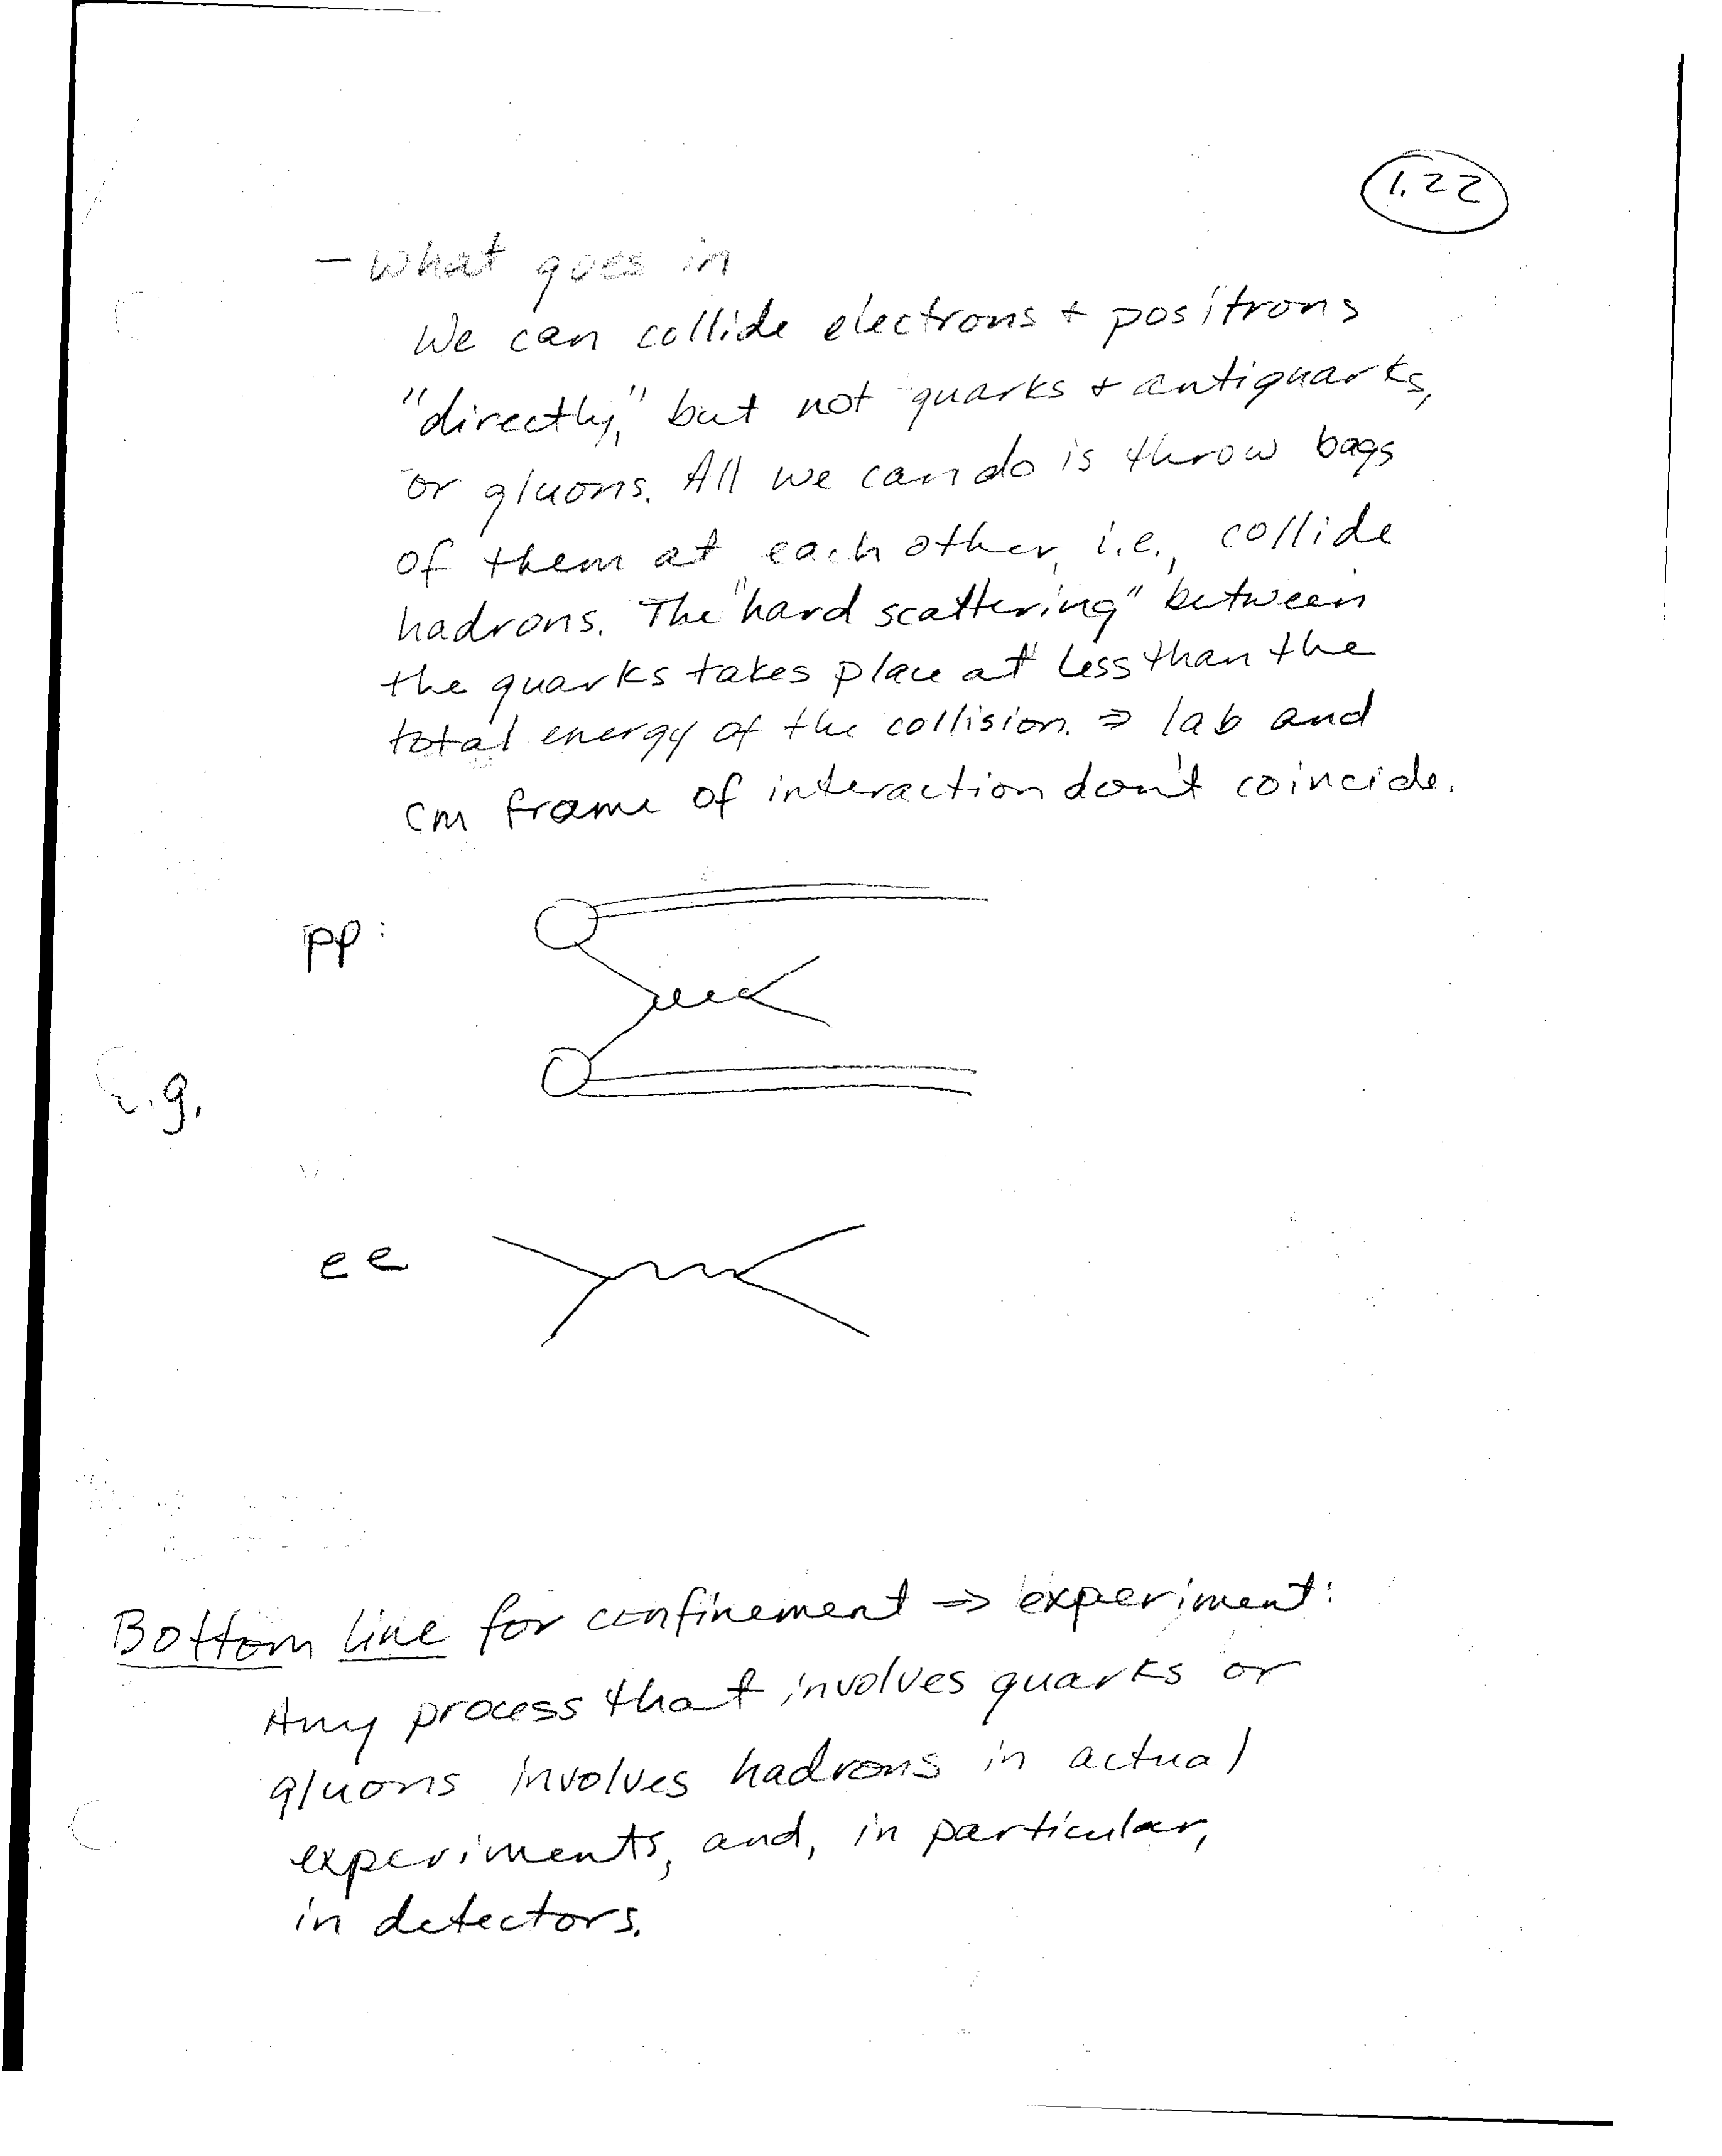 1.22
- What goes in
We can collide electrons + positrons
"directly," but not quarks + antiquarks,
or gluons. All we can do is throw bags
of them at each other, i.e., collide
hadrons. The "hard scattering" between
the quarks takes place at less than the
total energy of the collision. ⇒ lab and
cm frame of interaction don't coincide.
pp:
E.g.
ee
Bottom line for confinement ⇒ experiment:
Any process that involves quarks or
gluons involves hadrons in actual
experiments, and, in particular,
in detectors.